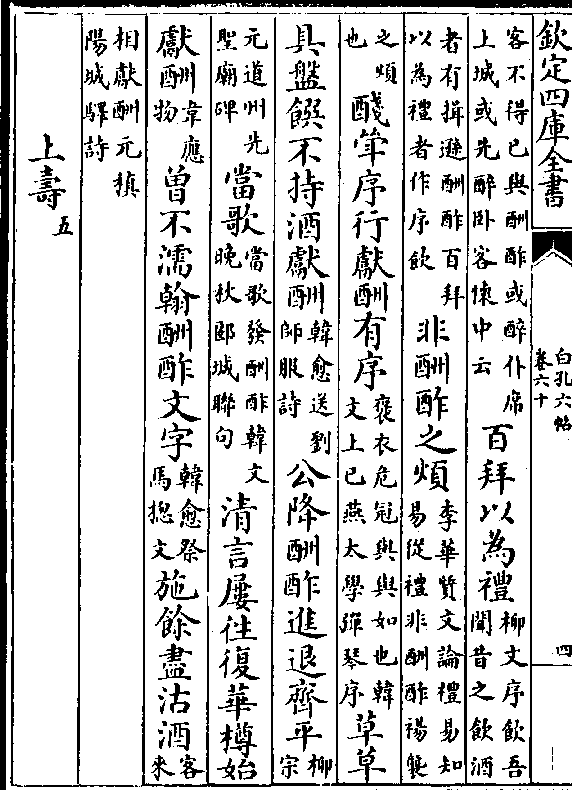 欽定四庫全書
白孔六帖
卷六十
四
客不得已與酬酢或醉仆席上城或先醉卧客懷中云百拜以為禮柳文序飲吾聞昔之飲酒
者有揖遜酬酢百拜以為禮者作序飲非酬酢之煩李華質文論禮易知易從禮非酬酢裼襲
之煩也醆斝序行獻酬有序褒衣危冠與與如也韓文上巳燕太學彈琴序草草
具盤饌不持酒獻酬韓愈送劉師服詩公降酬酢進退齊平柳宗
元道州先聖廟碑當歌當歌發酬酢韓文晚秋郾城聯句清言屢往復華樽始
獻酬韋應物曾不濡翰酬酢文字韓愈祭馬揔文施餘盡沽酒客来
相獻酬元稹陽城驛詩
上壽五